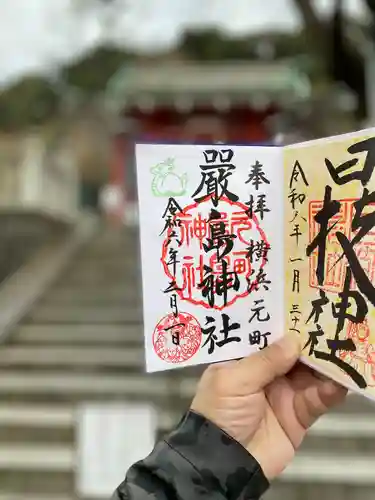 奉拝 横浜元町
嚴島神社
令和六年二月一日
元町
嚴島
神社
日枝神社
令和八年一月三十一